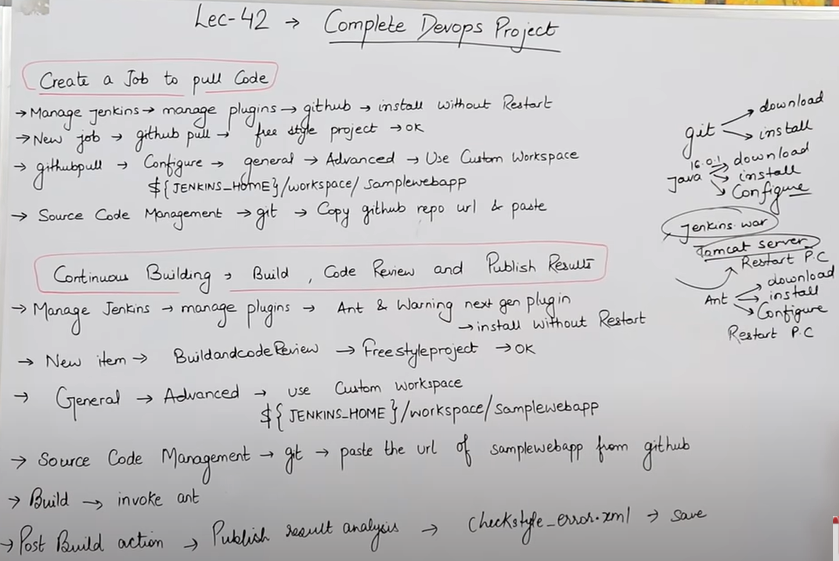 Lec-42 → Complete Devops Project
Create a Job to pull Code
→ Manage Jenkins → manage plugins → github → install without Restart
→ New job → github pull → free style project → OK
→ githubpull → Configure → general → Advanced → Use Custom Workspace
${JENKINS_HOME}/workspace/samplewebapp
→ Source Code Management → git → Copy github repo url & paste
Continuous Building → Build, Code Review and Publish Results
→ Manage Jenkins → manage plugins → Ant & Warning next gen plugin
→ install without Restart
→ New item → BuildandcodeReview → Freestyleproject → OK
→ General → Advanced → use Custom workspace
${JENKINS_HOME}/workspace/samplewebapp
→ Source Code Management → git → paste the url of samplewebapp from github
→ Build → invoke ant
→ Post Build action → Publish result analysis → Checkstyle_error.xml → save
git → download
→ install
16.0.1
Java → download
→ install
→ Configure
Jenkins.war
Tomcat server
Restart P.C
Ant → download
→ install
→ Configure
Restart P.C